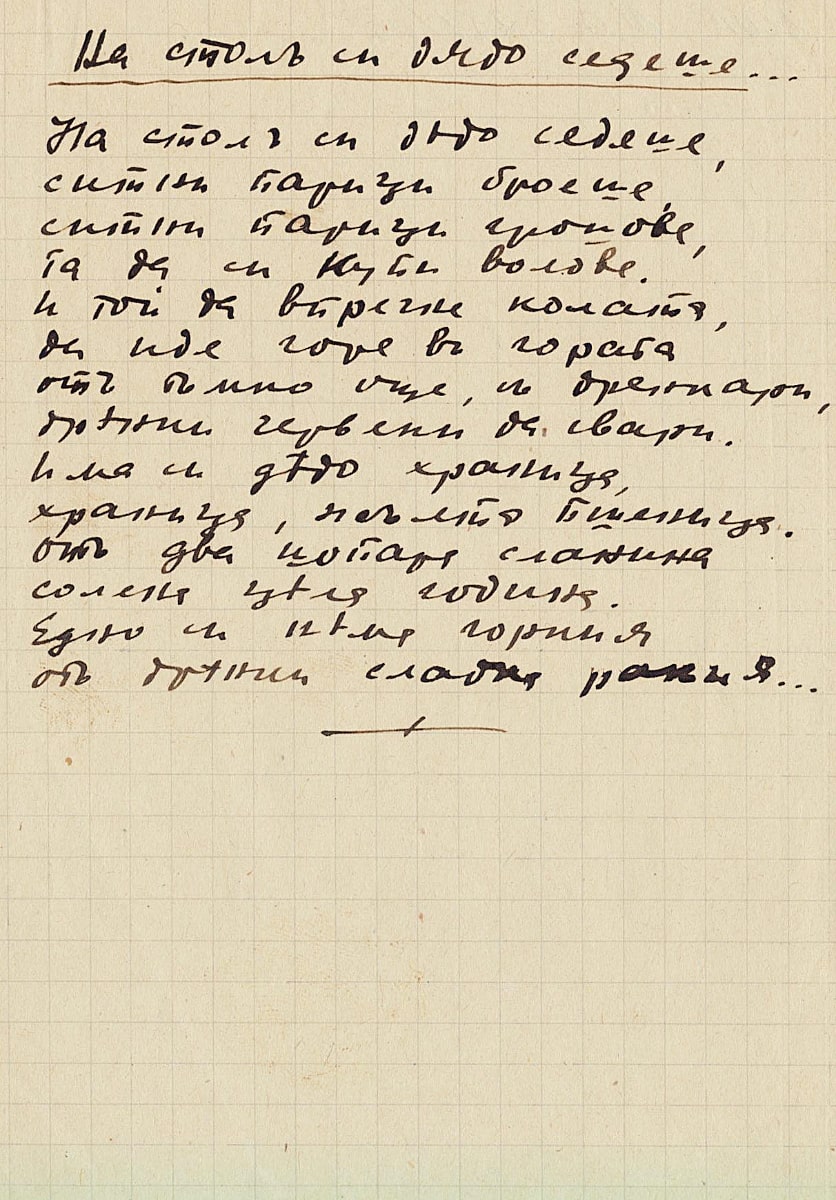 На столъ си дядо седеше...
На столъ си дѣдо седеше,
ситни парици броеше,
ситни парици грошове,
та да си купи волове.
И той да впрегне колата,
да иде горе въ гората
отъ тъмно още, въ дренгари,
дрѣнки червени да свари.
Има си дѣдо храница,
храница, жълта пшеница.
отъ два шопара сланина
солена цѣла година.
Едно си нѣма горкия
отъ дрѣнки сладка ракия...